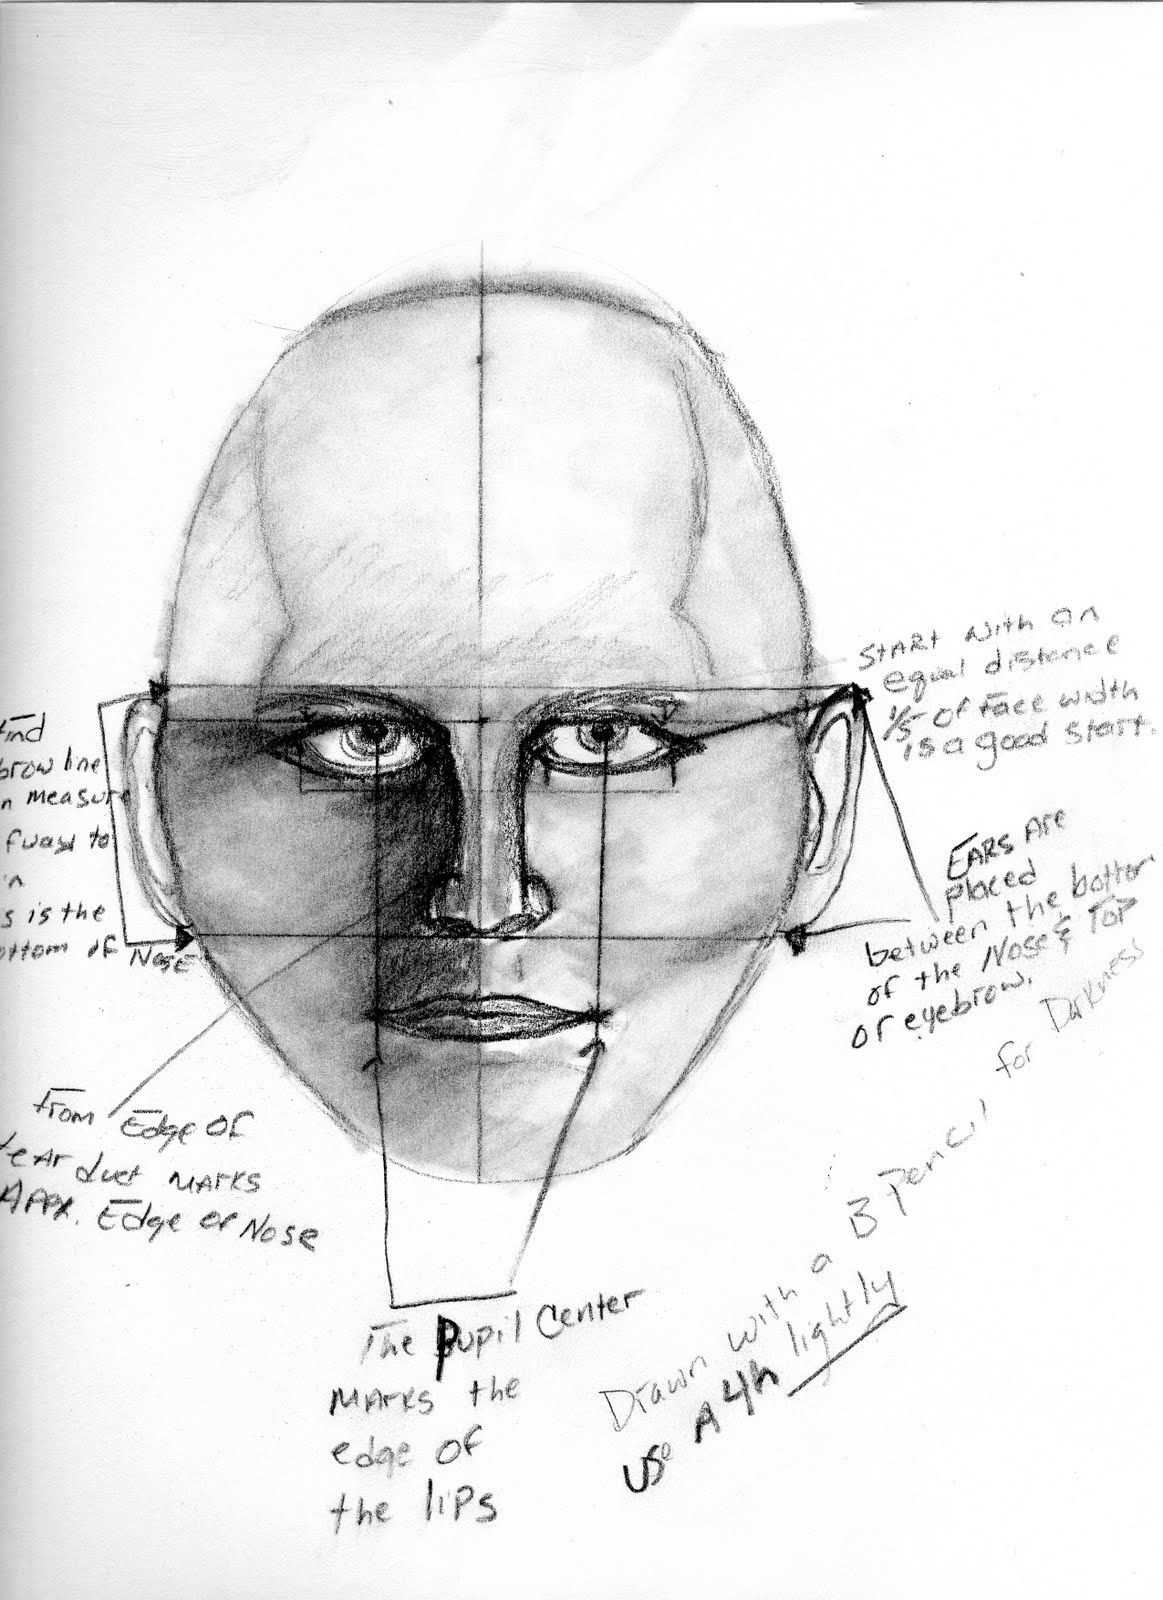 START with an
equal distance
1/5 of face width
is a good start.
find
brow line
n measure
fway to
in
s is the
ottom of Nose
EARS Are
placed
between the bottom
of the Nose & Top
of eyebrow.
from Edge of
tear duct MARKS
Appx. Edge of Nose
The Pupil Center
MARKS the
edge of
the lips
Drawn with a B pencil for Darkness
Use A 4h lightly